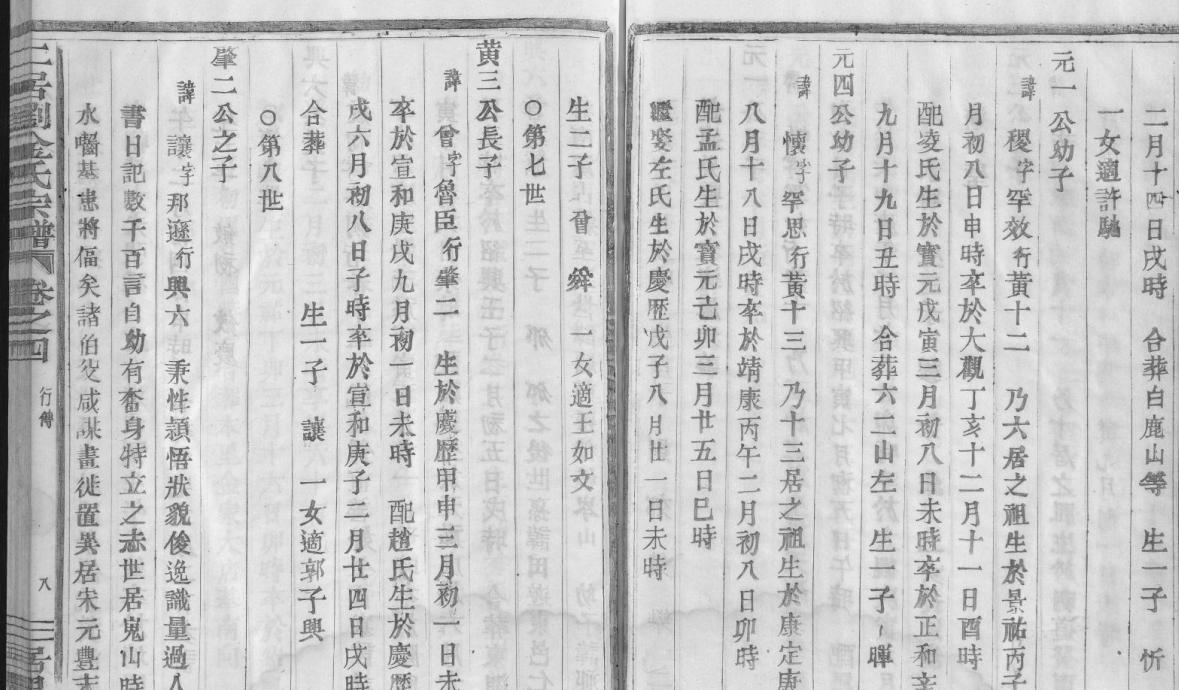 二月十四日戌時　合葬白鹿山等　生一子　忻
一女適許馳
元一公幼子
諱稷字罕效行黃十二　乃六居之祖生於景祐丙子
月初八日申時卒於大觀丁亥十二月十一日酉時
配凌氏生於寶元戊寅三月初八日未時卒於正和辛
九月十九日丑時　合葬六二山左　生一子　暉
元四公幼子
諱懷字罕思行黃十三　乃十三居之祖生於康定庚
八月十八日戌時卒於靖康丙午二月初八日卯時
配孟氏生於寶元己卯三月廿五日巳時
繼娶左氏生於慶歷戊子八月廿一日未時
生二子　曾　舜　一女適王如文
○第七世
黃三公長子
諱曾字魯臣行肇二　生於慶歷甲申三月初一日未
卒於宣和庚戌九月初一日未時　配趙氏生於慶歷
戌六月初八日子時卒於宣和庚子二月廿四日戌時
合葬　生一子　讓　一女適郭子興
○第八世
肇二公之子
諱讓字那遜行興六　秉性穎悟狀貌俊逸識量過人
書日記數千百言自幼有奮身特立之志世居嵬山時
水嚙基患將偪矣諸伯父咸謀畫徙置異居宋元豐末
劉金氏宗譜　卷之四　行傳　八